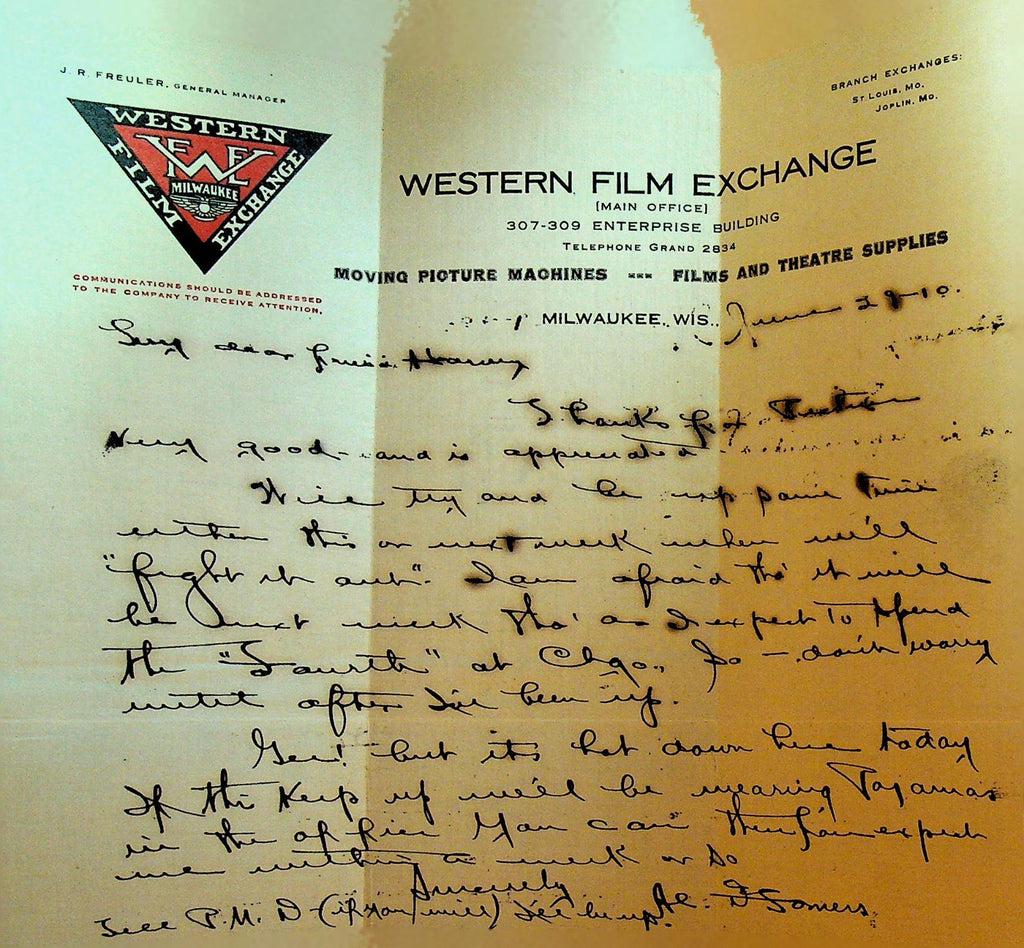 J. R. FREULER, GENERAL MANAGER
BRANCH EXCHANGES:
ST. LOUIS, MO.
JOPLIN, MO.
WESTERN
FILM
EXCHANGE
WFE
MILWAUKEE
WESTERN FILM EXCHANGE
[MAIN OFFICE]
307-309 ENTERPRISE BUILDING
TELEPHONE GRAND 2834
MOVING PICTURE MACHINES --- FILMS AND THEATRE SUPPLIES
COMMUNICATIONS SHOULD BE ADDRESSED
TO THE COMPANY TO RECEIVE ATTENTION.
MILWAUKEE, WIS., June 28-10.
dear Harvey
Thanks for
Very good - and is appreciated
try and be up some time
either this or next week when we'll
"fight it out". I am afraid tho' it will
be next week tho' as I expect to spend
the "Fourth" at Chgo., So - don't worry
until after I've been up.
Gee! but its hot down here today
If this keep up we'll be wearing Pajamas
in the office You can therefore expect
me within a week or so
Sincerely
Tell P.M.D - (if you will) I'll be up. Al. D Somers